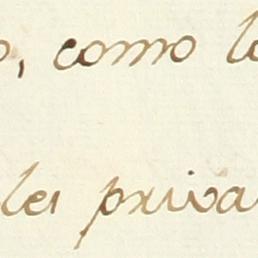 o, como lo
les priva